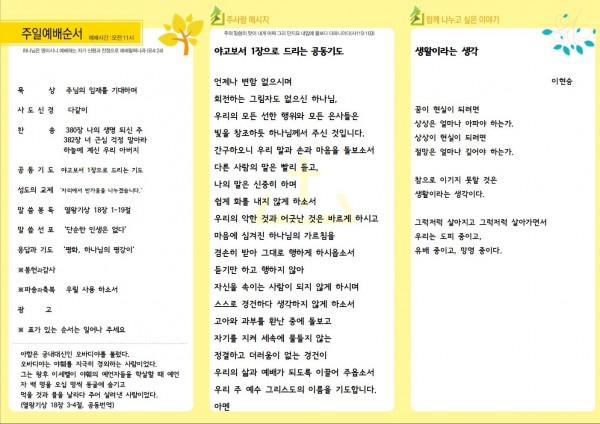 주일예배순서 예배시간 : 오전 11시
하나님은 영이시니 예배하는 자가 신령과 진정으로 예배할찌니라 (요4:24)
묵 상 주님의 임재를 기대하며
사 도 신 경 다같이
찬 송 380장 나의 생명 되신 주
382장 너 근심 걱정 말아라
하늘에 계신 우리 아버지
공 동 기 도 야고보서 1장으로 드리는 기도
성도의 교제 '자리에서 반가움을 나누겠습니다.'
말 씀 봉 독 열왕기상 18장 1-19절
말 씀 선 포 '단순한 인생은 없다'
응답과 기도 '평화, 하나님의 평강이'
※봉헌과감사
※파송과축복 우릴 사용 하소서
광 고
※ 표가 있는 순서는 일어나 주세요
아합은 궁내대신인 오바디야를 불렀다.
오바디야는 야훼를 지극히 경외하는 사람이었다.
그는 왕후 이세벨이 야훼의 예언자들을 학살할 때 예언
자 백 명을 오십 명씩 동굴에 숨기고
먹을 것과 물을 날라다 주어 살려낸 사람이었다.
(열왕기상 18장 3-4절, 공동번역)
주사랑 메시지
주의 말씀의 맛이 내게 어찌 그리 단지요 내입에 꿀보다 더하니이다(시119:103)
야고보서 1장으로 드리는 공동기도
언제나 변함 없으시며
회전하는 그림자도 없으신 하나님,
우리의 모든 선한 행위와 모든 은사들은
빛을 창조하듯 하나님께서 주신 것입니다.
간구하오니 우리 말과 손과 마음을 돌보소서
다른 사람의 말은 빨리 듣고,
나의 말은 신중히 하며
쉽게 화를 내지 않게 하소서
우리의 악한 것과 어긋난 것은 바르게 하시고
마음에 심겨진 하나님의 가르침을
겸손히 받아 그대로 행하게 하시옵소서
듣기만 하고 행하지 않아
자신을 속이는 사람이 되지 않게 하시며
스스로 경건하다 생각하지 않게 하소서
고아와 과부를 환난 중에 돌보고
자기를 지켜 세속에 물들지 않는
정결하고 더러움이 없는 경건이
우리의 삶과 예배가 되도록 이끌어 주옵소서
우리 주 예수 그리스도의 이름을 기도합니다.
아멘
함께 나누고 싶은 이야기
생활이라는 생각
이현승
꿈이 현실이 되려면
상상은 얼마나 아파야 하는가.
상상이 현실이 되려면
절망은 얼마나 깊어야 하는가.
참으로 이기지 못할 것은
생활이라는 생각이다.
그럭저럭 살아지고 그럭저럭 살아가면서
우리는 도피 중이고,
유배 중이고, 망명 중이다.